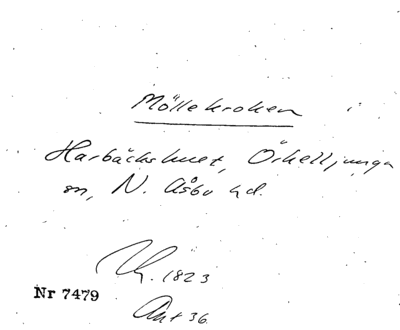 Möllekroken
Harbäckshult, Örkelljunga
sn, N. Åsbo hd.
1823
Nr 7479
Ant 36